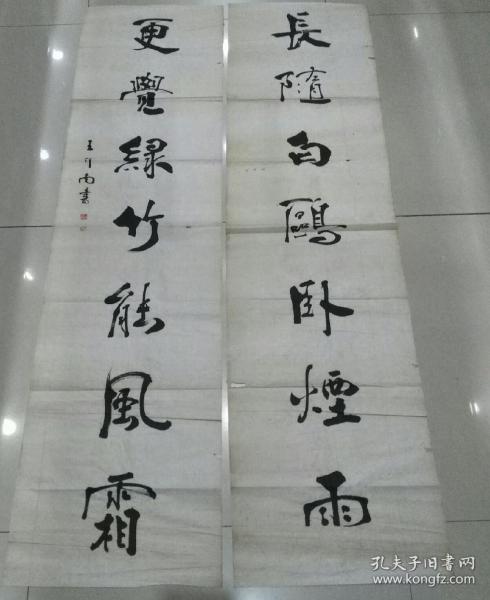 長隨白鷗卧煙雨
更覺綠竹能風霜
孔夫子旧书网
www.kongfz.com